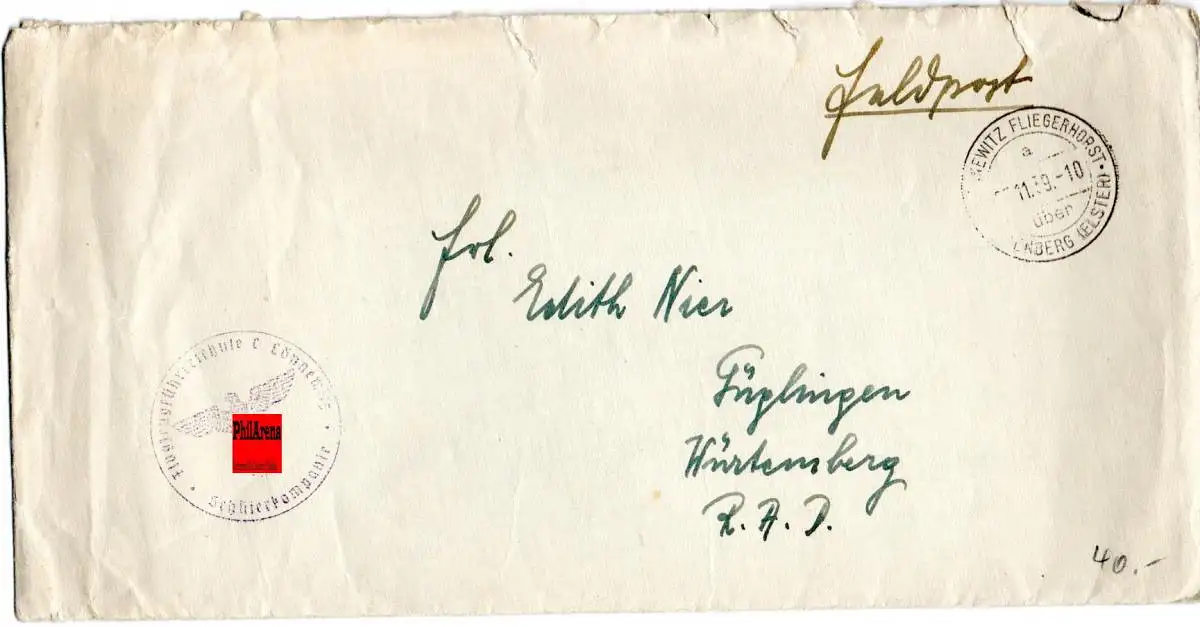 Feldpost
EWITZ FLIEGERHORST
a
11.39.-10
über
ENBERG (ELSTER)
Frl.
Edith Nier
Füglingen
Würtemberg
R. A. D.
Flugzeugführerschule C
Schülerkompanie
PhilArena
40.-